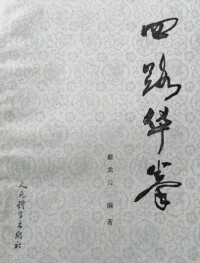 四路华拳
蔡龙云 编著
人民体育出版社